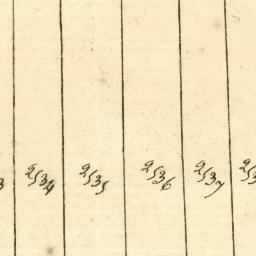 2534 2535 2536 2537